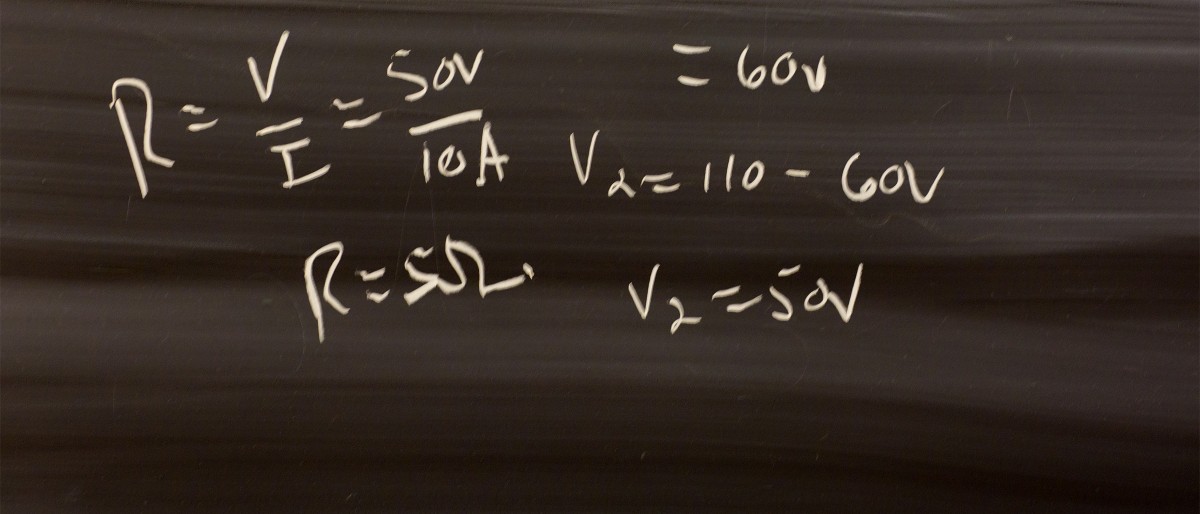 R = V/I = 50V/10A
R = 5Ω
= 60V
V₂ = 110 - 60V
V₂ = 50V